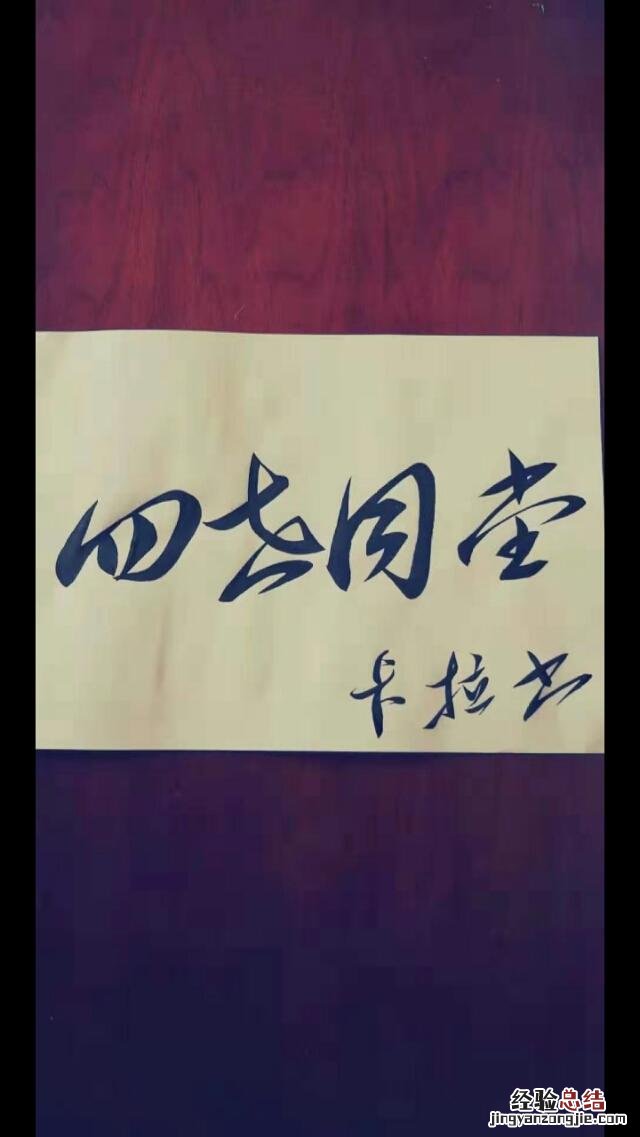 四世同堂
卡拉书
经验总结
jingyanzongjie.com